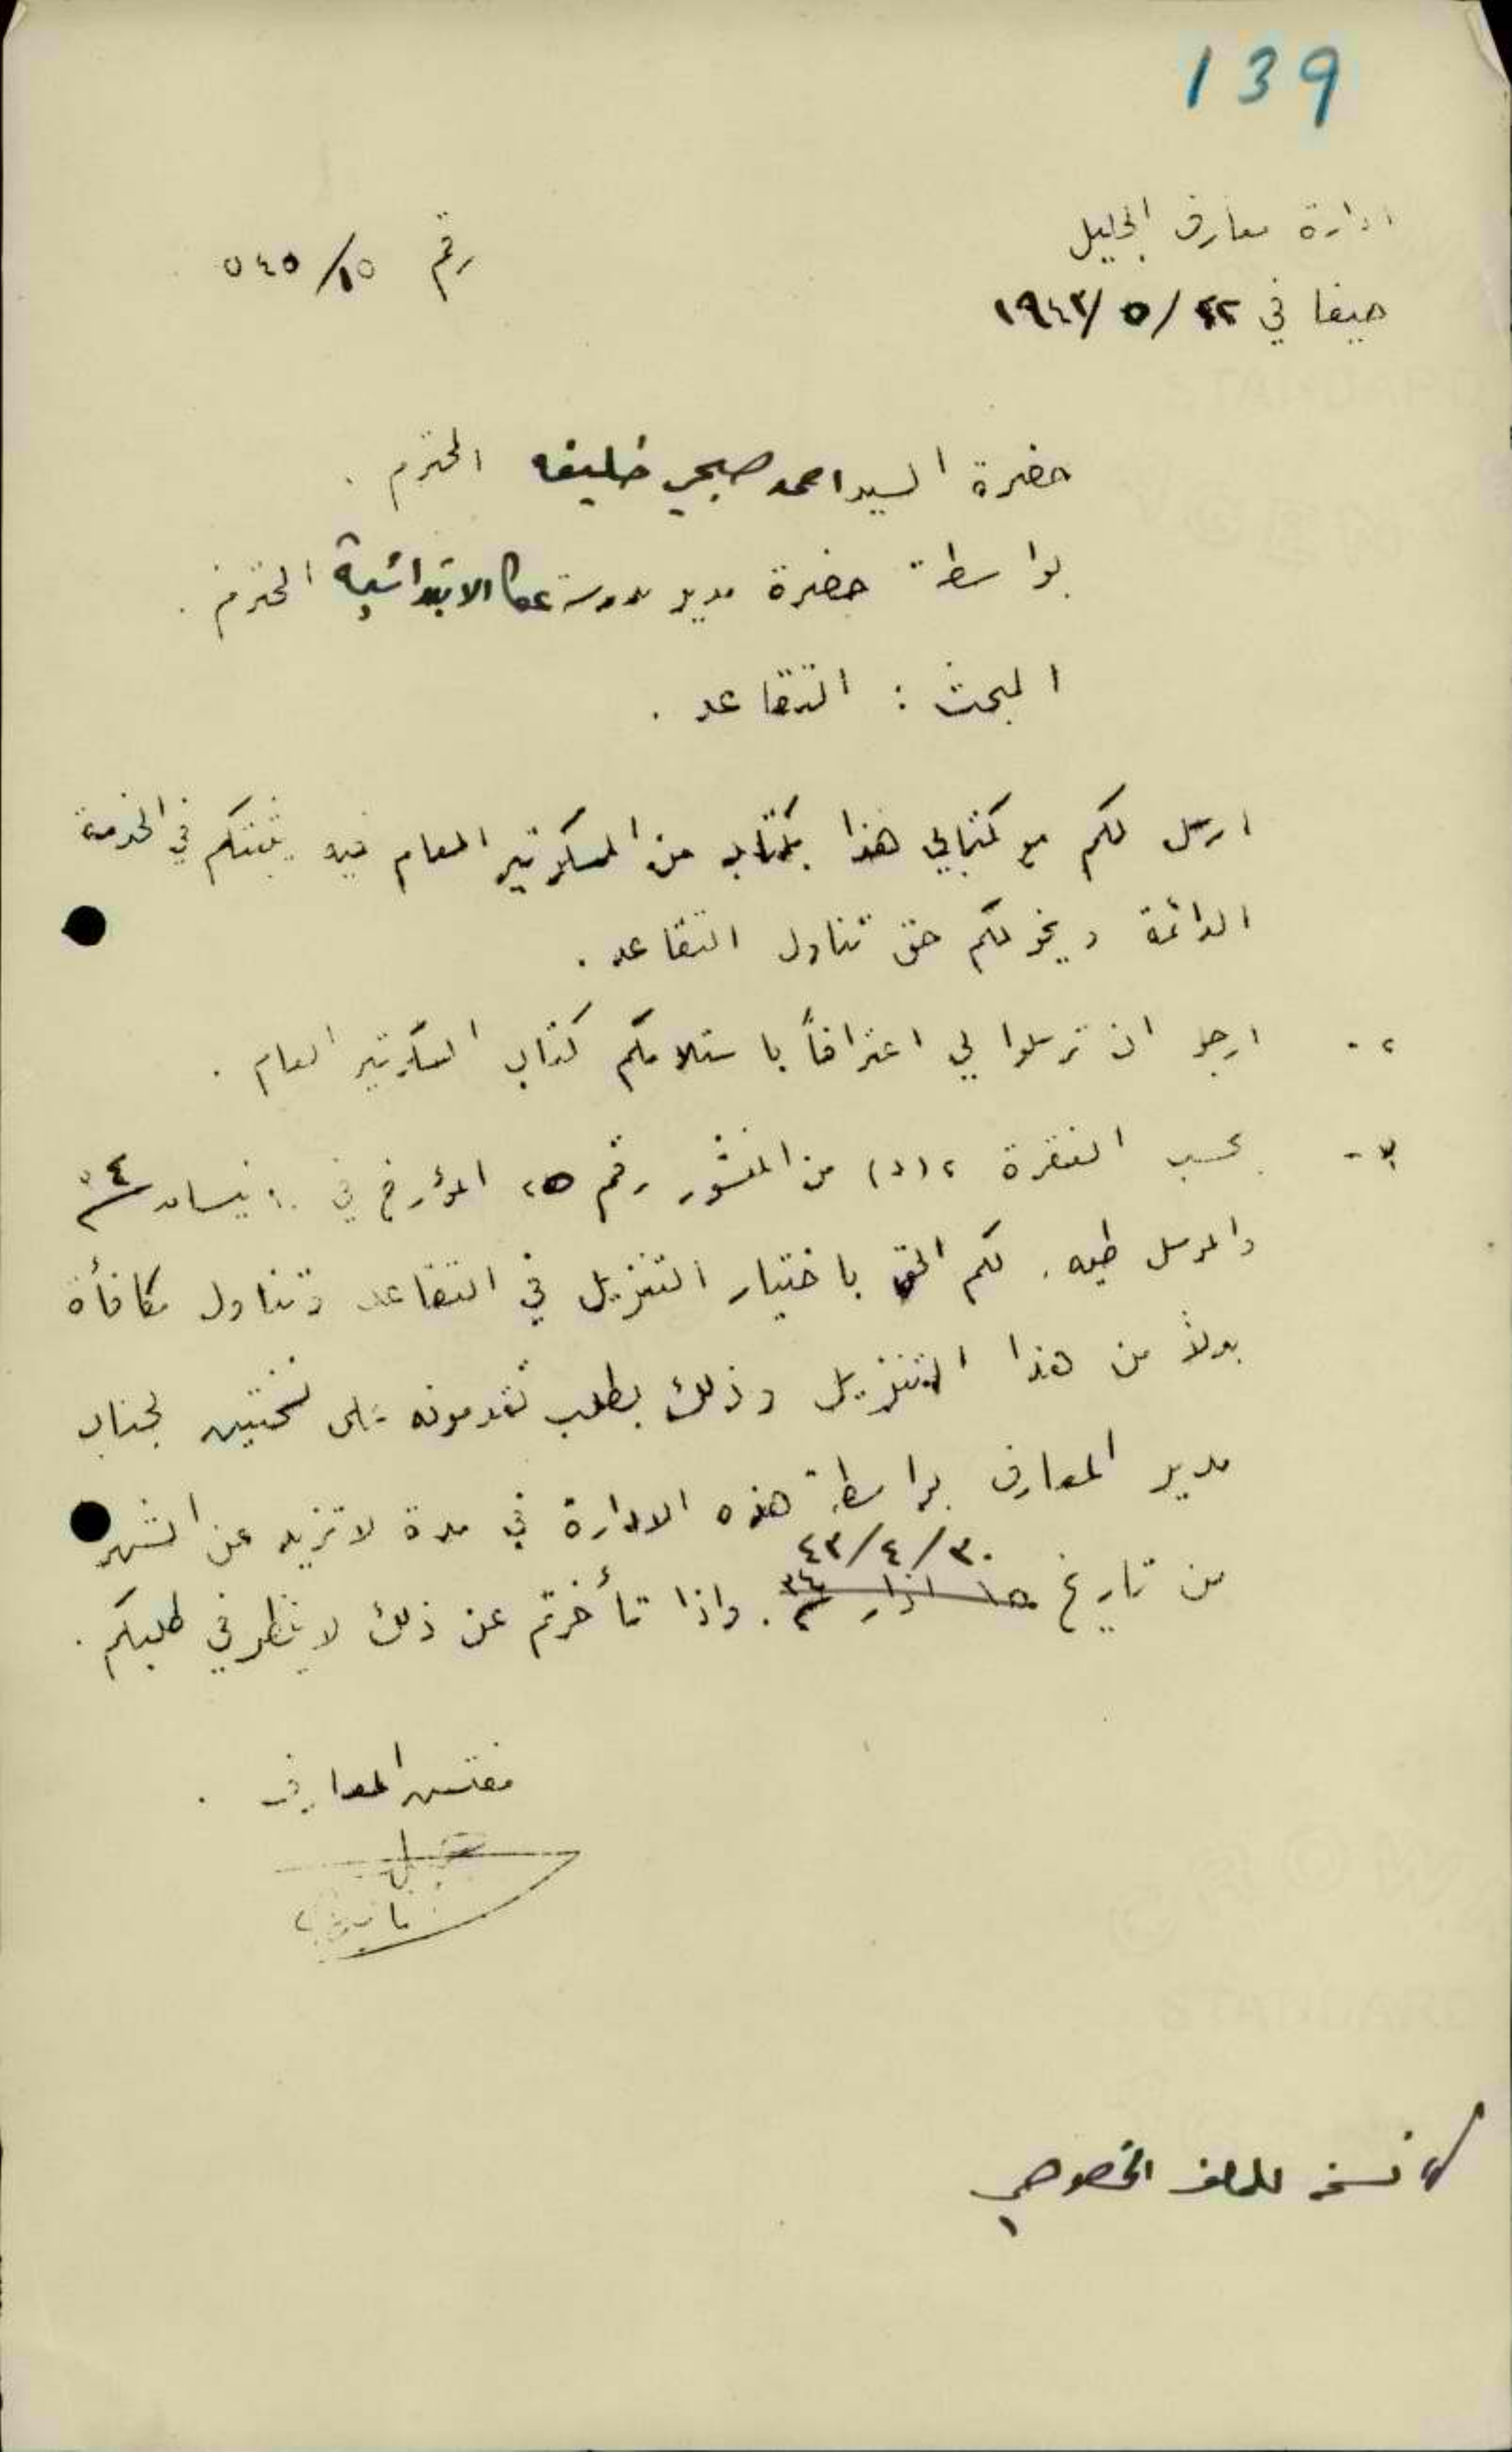 139
ادارة معارف الجليل
رقم ١٥/ ٥٤٥
حيفا في ٢٢/ ٥/ ١٩٤٣
حضرة السيد احمد صبحي خليفه المحترم .
بواسطة حضرة مدير مدرسة عكا الابتدائية المحترم .
المبحث : التقاعد .
ارسل لكم مع كتابي هذا بكتاب من السكرتير العام فيه يثبتكم في الخدمة
الدائمة ويخولكم حق تناول التقاعد .
٢- ارجو ان ترسلوا لي اعترافاً باستلامكم كتاب السكرتير العام .
٣- بحسب الفقرة ٢ (د) من المنشور رقم ٢٥ المؤرخ في نيسان
والمرسل طيه . لكم الحق باختيار التنزيل في التقاعد وتناول مكافأة
بدلاً من هذا التنزيل وذلك بطلب تقدمونه على نسختين لجناب
مدير المعارف بواسطة هذه الادارة في مدة لا تزيد عن الشهر
٣٠/ ٤/ ٤٣
من تاريخ ١٥ اذار . واذا تأخرتم عن ذلك لا ينظر في طلبكم .
مفتش المعارف .
نسخه للملف الخصوصي